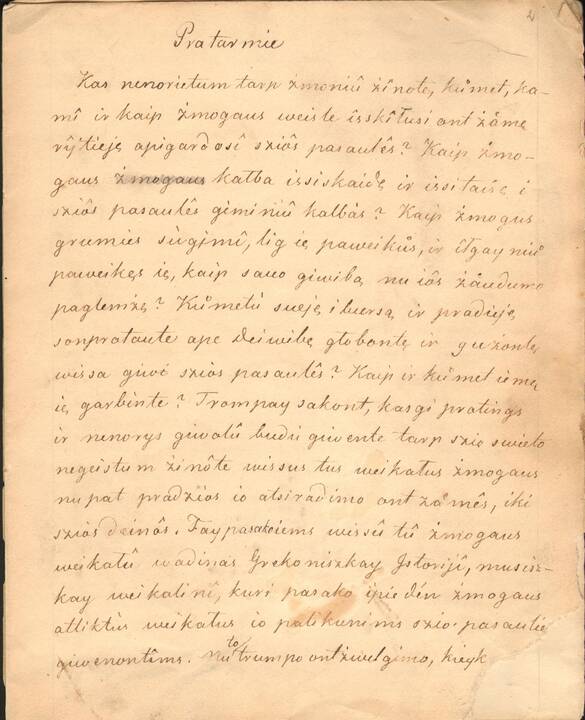 2
Pratarmie
Kas nenorietum tarp żmoniû żinote, kůmet, ka-
mî ir kaip żmogaus weisle isskîtusi ont żåmę
rytieję apigardosê sziôs pasaulês? Kaip żmo-
gaus żmogaus kalba issiskaidę ir issitaisę i
sziôs pasaulês giminiû kalbàs? Kaip żmogus
grumies sù gimî, lig ię paweikůs, ir itgay niů
paweikęs ię, kaip sawo giwibą nu iôs żåudumo
paglemżę? Kůmetù suęję i buersą ir pradieję
sonprataute ape Deiwibę globontę ir gużontę
wissa giwê sziôs pasaulês? Kaip ir kůmet iemę
ię garbinte? Trompay sakont, kasgi pratings
ir nenorys giwolû budù giwente tarp szię swieto
negeistum żinôte wissus tus weikalus żmogaus
nu pat pradżios io atsiradimo ont żåmês, iki
sziôs deinôs. Tay pasakoiems wissû tû żmogaus
weikalû wadinas Grekoniszkay Istorijî, musisz-
kay weikalinî, kuri pasako ipiedên żmogaus
atliktùs weikalus io palikunims szio pasaulie
giwenontîms. Nu to trumpo ontżwelgimo, kiejk